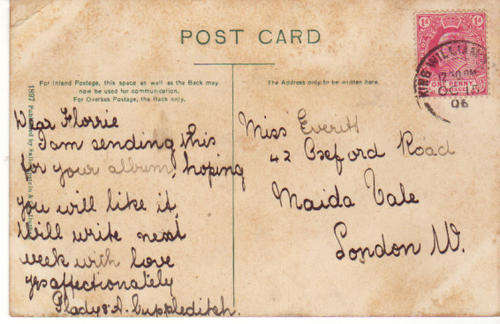 POST CARD
For Inland Postage, this space as well as the Back may
now be used for communication.
For Overseas Postage, the Back only.
The Address only to be written here.
Dear Florrie
I am sending this
for your album, hoping
you will like it
Will write next
week with love
yrs affectionately
Gladys & A. Cuppleditch.
Miss Everitt
42 Oxford Road
Maida Vale
London W.
1d
KING WILLIAM
OC 14
06
1897